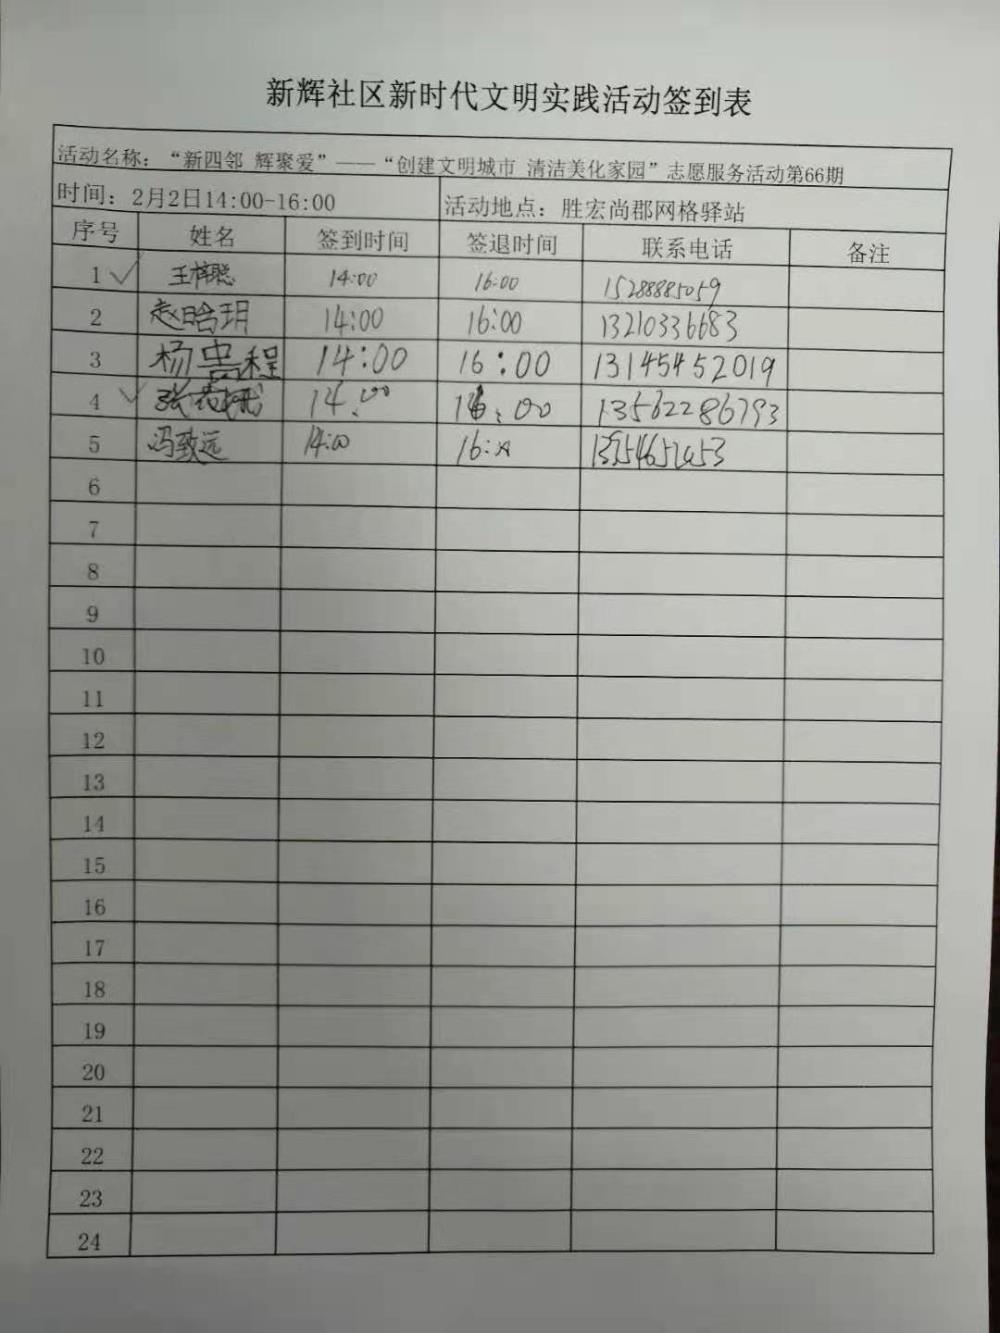 新辉社区新时代文明实践活动签到表
活动名称：“新四邻 辉聚爱”——“创建文明城市 清洁美化家园”志愿服务活动第66期
时间：2月2日14:00-16:00 活动地点：胜宏尚郡网格驿站
序号 姓名 签到时间 签退时间 联系电话 备注
1 ✓ 王梓聪 14:00 16:00 15288885059
2 赵晗玥 14:00 16:00 13210336683
3 杨程 14:00 16:00 13145452019
4 ✓ 张 14:00 16:00 13562286793
5 冯致远 14:00 16:
6
7
8
9
10
11
12
13
14
15
16
17
18
19
20
21
22
23
24